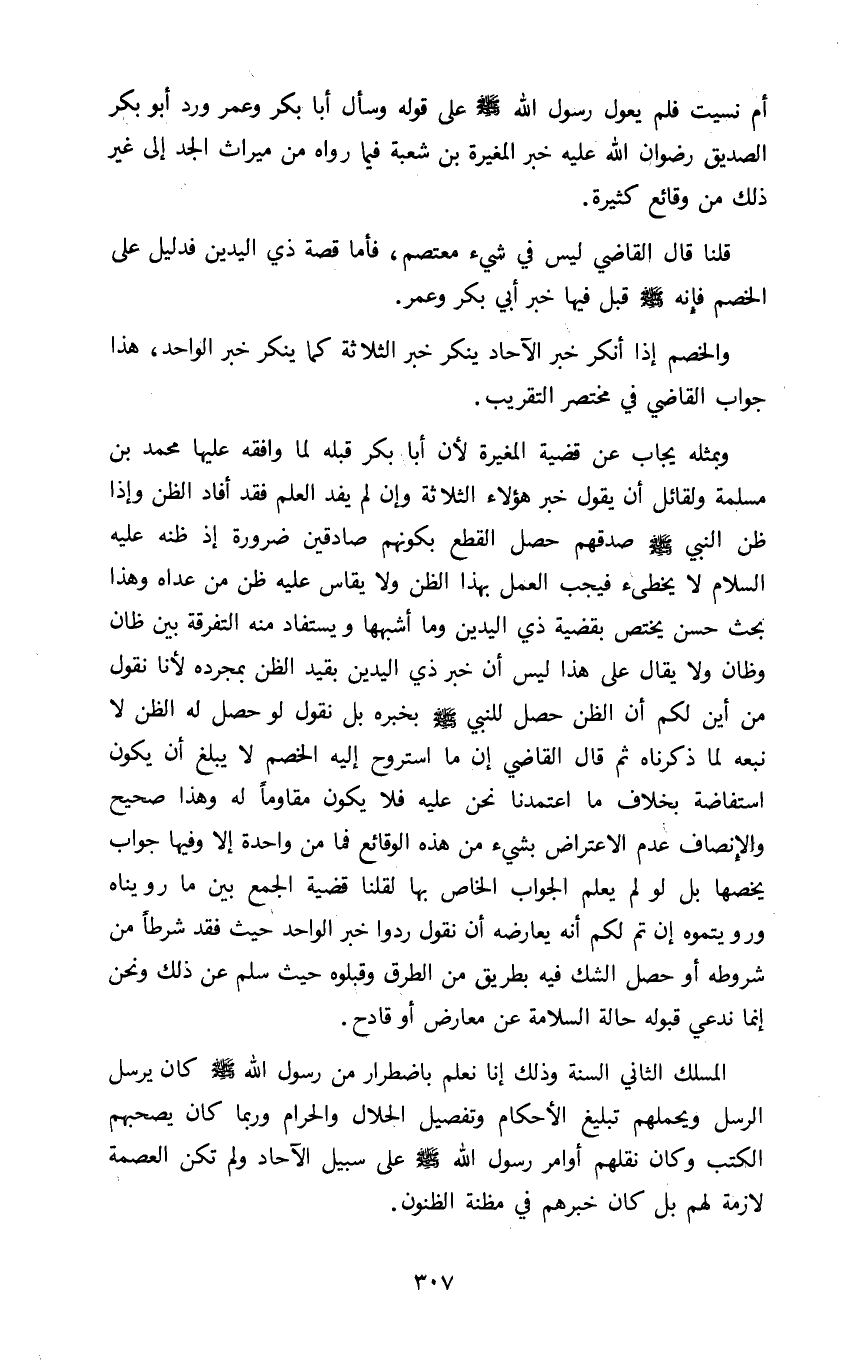 أم نسيت فلم يعول رسول الله ﷺ على قوله وسأل أبا بكر وعمر ورد أبو بكر
الصديق رضوان الله عليه خبر المغيرة بن شعبة فيما رواه من ميراث الجد إلى غير
ذلك من وقائع كثيرة.
قلنا قال القاضي ليس في شيء معتصم، فأما قصة ذي اليدين فدليل على
الخصم فإنه ﷺ قبل فيها خبر أبي بكر وعمر.
والخصم إذا أنكر خبر الآحاد ينكر خبر الثلاثة كما ينكر خبر الواحد، هذا
جواب القاضي في مختصر التقريب.
وبمثله يجاب عن قضية المغيرة لأن أبا بكر قبله لما وافقه عليها محمد بن
مسلمة ولقائل أن يقول خبر هؤلاء الثلاثة وإن لم يفد العلم فقد أفاد الظن وإذا
ظن النبي ﷺ صدقهم حصل القطع بكونهم صادقين ضرورة إذ ظنه عليه
السلام لا يخطىء فيجب العمل بهذا الظن ولا يقاس عليه ظن من عداه وهذا
بحث حسن يختص بقضية ذي اليدين وما أشبهها ويستفاد منه التفرقة بين ظان
وظان ولا يقال على هذا ليس أن خبر ذي اليدين بقيد الظن بمجرده لأنا نقول
من أين لكم أن الظن حصل للنبي ﷺ بخبره بل نقول لو حصل له الظن لا
نبعه لما ذكرناه ثم قال القاضي إن ما استروح إليه الخصم لا يبلغ أن يكون
استفاضة بخلاف ما اعتمدنا نحن عليه فلا يكون مقاوماً له وهذا صحيح
والإنصاف عدم الاعتراض بشيء من هذه الوقائع فما من واحدة إلا وفيها جواب
يخصها بل لو لم يعلم الجواب الخاص بها لقلنا قضية الجمع بين ما رويناه
ورويتموه إن تم لكم أنه يعارضه أن نقول ردوا خبر الواحد حيث فقد شرطاً من
شروطه أو حصل الشك فيه بطريق من الطرق وقبلوه حيث سلم عن ذلك ونحن
إنما ندعي قبوله حالة السلامة عن معارض أو قادح.
المسلك الثاني السنة وذلك إنا نعلم باضطرار من رسول الله ﷺ كان يرسل
الرسل ويحملهم تبليغ الأحكام وتفصيل الحلال والحرام وربما كان يصحبهم
الكتب وكان نقلهم أوامر رسول الله ﷺ على سبيل الآحاد ولم تكن العصمة
لازمة لهم بل كان خبرهم في مظنة الظنون.
٣٠٧